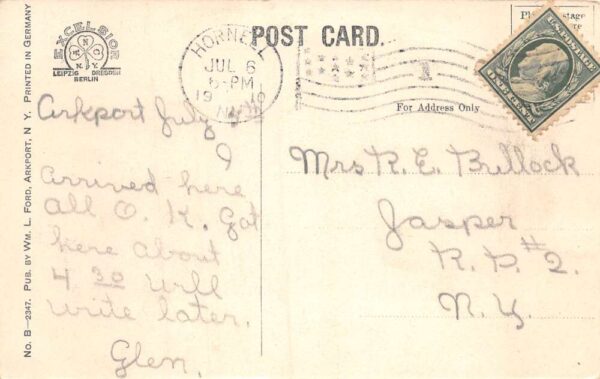 EXCELSIOR
M N O
N. Y.
LEIPZIG DRESDEN
BERLIN
HORNELL
JUL 6
6-PM
1910
N.Y.
POST CARD.
1
Place Postage
Here
U.S. POSTAGE
ONE CENT
For Address Only
Arkport July
Arrived here
all O. K. Got
here about
4 30 will
write later.
Glen.
Mrs R. E. Bullock
Jasper
R. D. #2.
N. Y.
No. B—2347. PUB. BY WM. L. FORD, ARKPORT, N. Y. PRINTED IN GERMANY